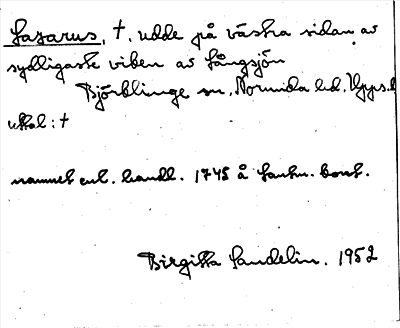 Lazarus, †, udde på västra sidan av
sydligaste viken av Långsjön
Björklinge sn, Norunda hd. Upps. l
uttal: †
namnet enl. handl. 1745 å Lantm. kont.
Birgitta Sandelin. 1952